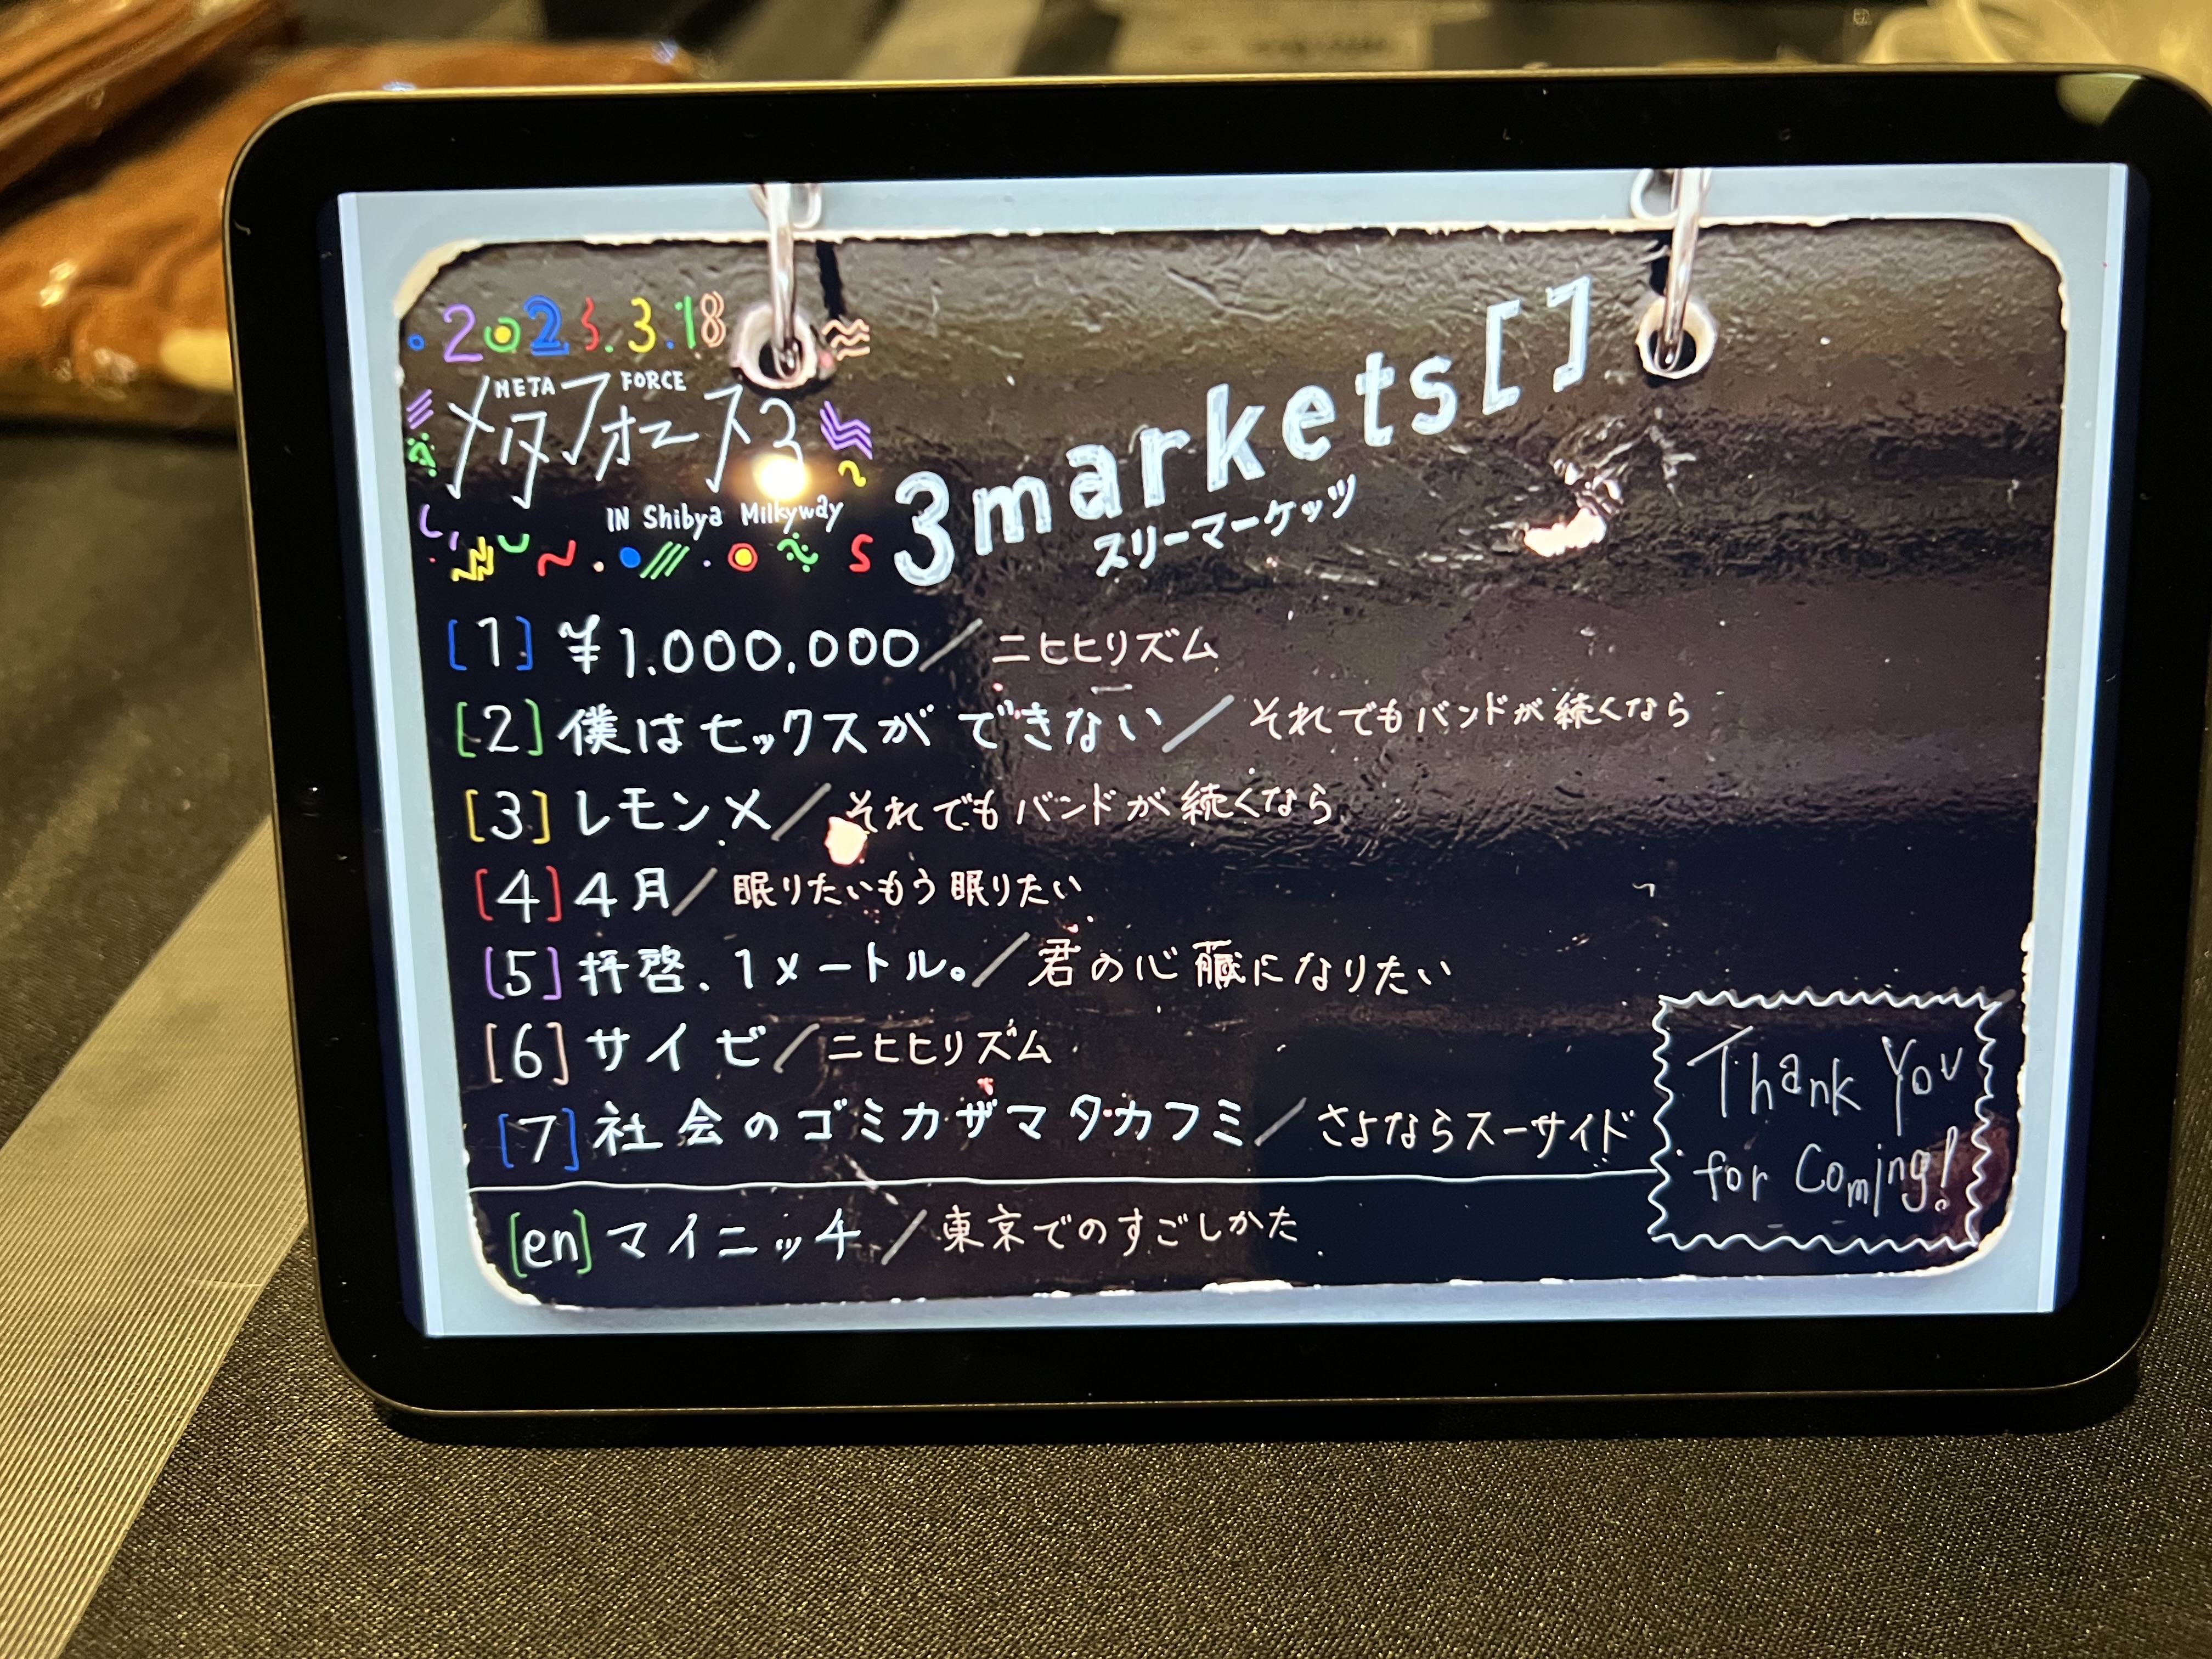 2023.3.18
META FORCE
メタフォース3
IN Shibya Milkyway
3markets[ ]
スリーマーケッツ
[1] ¥1.000,000／ニヒヒリズム
[2] 僕はセックスができない／それでもバンドが続くなら
[3] レモン×／それでもバンドが続くなら
[4] 4月／眠りたいもう眠りたい
[5] 拝啓、1メートル。／君の心臓になりたい
[6] サイゼ／ニヒヒリズム
[7] 社会のゴミカザマタカフミ／さよならスーサイド
[en] マイニッチ／東京でのすごしかた
Thank You
for Coming!